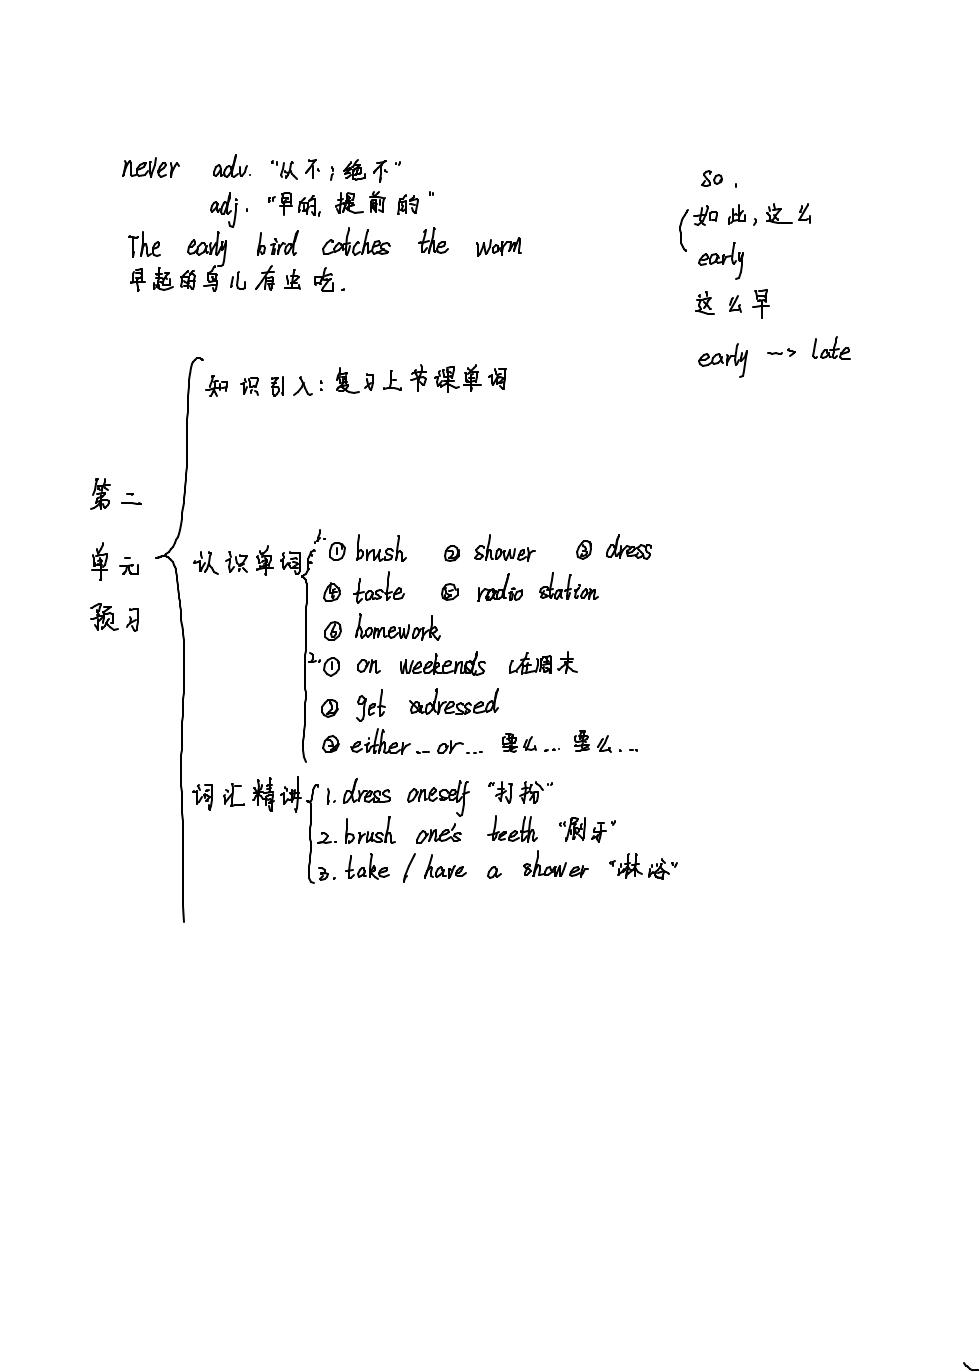 never adv. "从不；绝不"
adj. "早的, 提前的"
The early bird catches the worm
早起的鸟儿有虫吃.
so.
如此, 这么
early
这么早
early --> late
第二
单元
预习
知识引入: 复习上节课单词
认识单词
1. ① brush ② shower ③ dress
④ taste ⑤ radio station
⑥ homework
2. ① on weekends 在周末
② get dressed
③ either...or... 要么... 要么...
词汇精讲
1. dress oneself "打扮"
2. brush one's teeth "刷牙"
3. take / have a shower "淋浴"